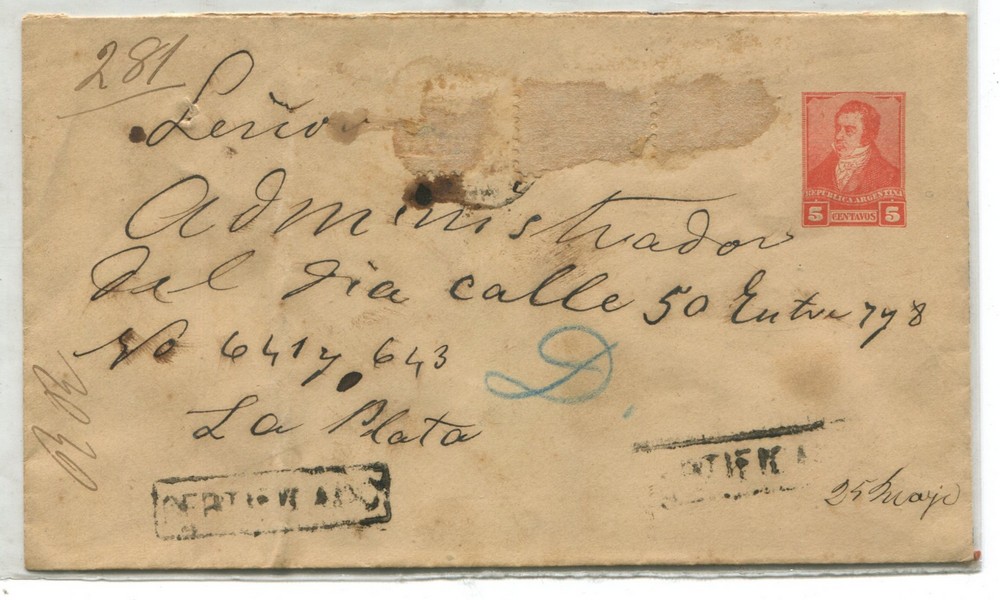 281
Señor
Administrador
del Dia calle 50 Entre 7 y 8
No 641 y 643
La Plata
D.
REPUBLICA ARGENTINA
5 CENTAVOS 5
CERTIFICADO
25 Mayo